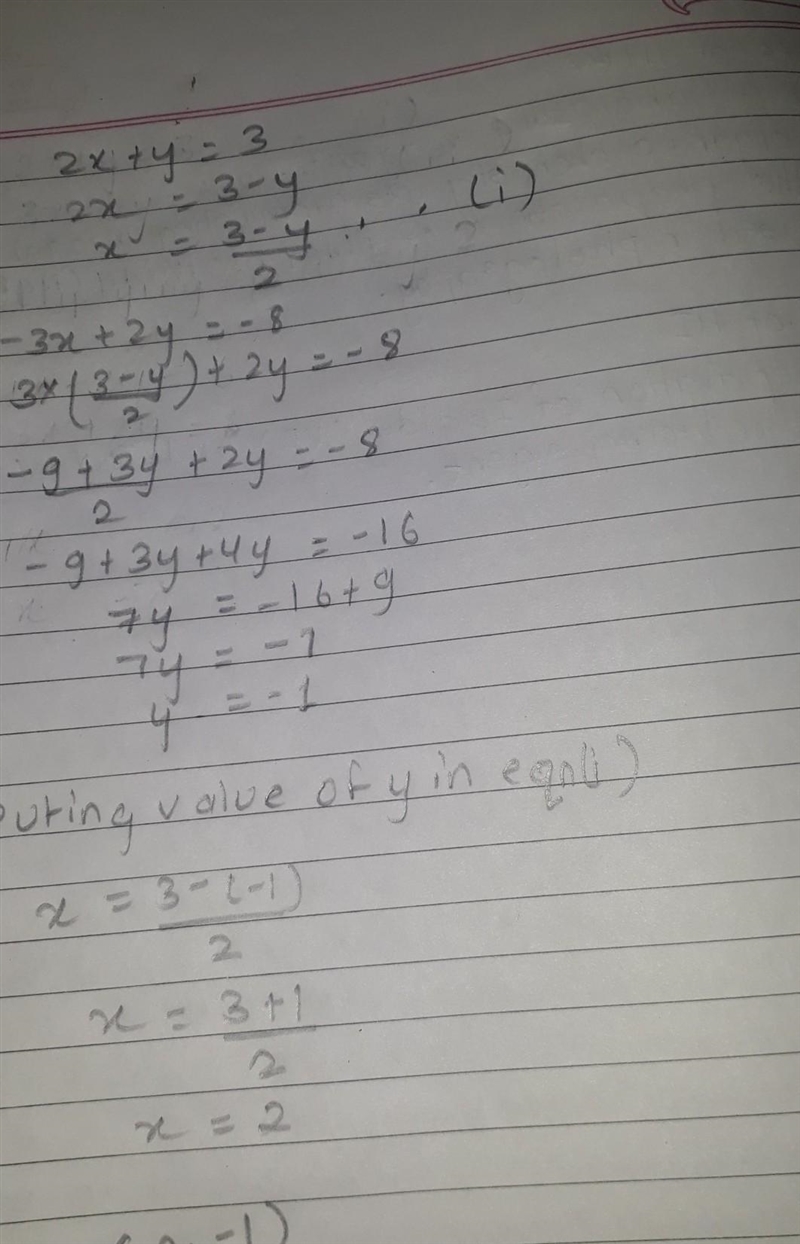 2x + y = 3
2x = 3 - y
x = 3 - y / 2 . . (i)
- 3x + 2y = - 8
3x (3 - y / 2) + 2y = - 8
- 9 + 3y / 2 + 2y = - 8
- 9 + 3y + 4y = - 16
7y = - 16 + 9
7y = - 7
y = - 1
value of y in eqn(i)
x = 3 - (-1) / 2
x = 3 + 1 / 2
x = 2
-1)